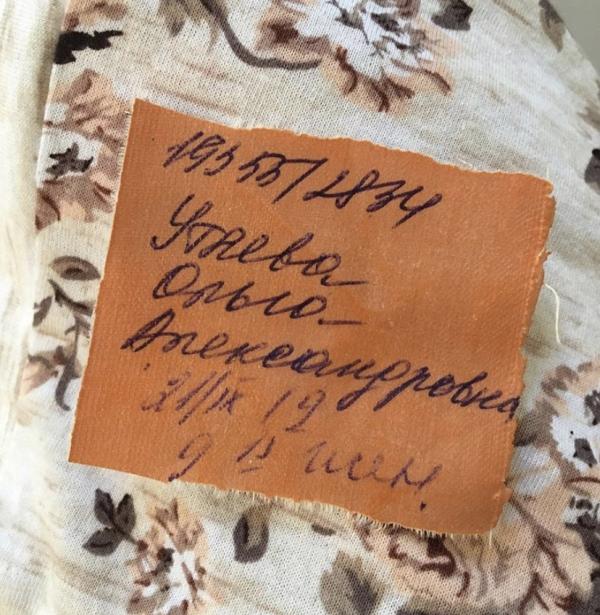 19353/2834
Утяева
Ольга
Александровна
21/IX 19
9 15 жен.